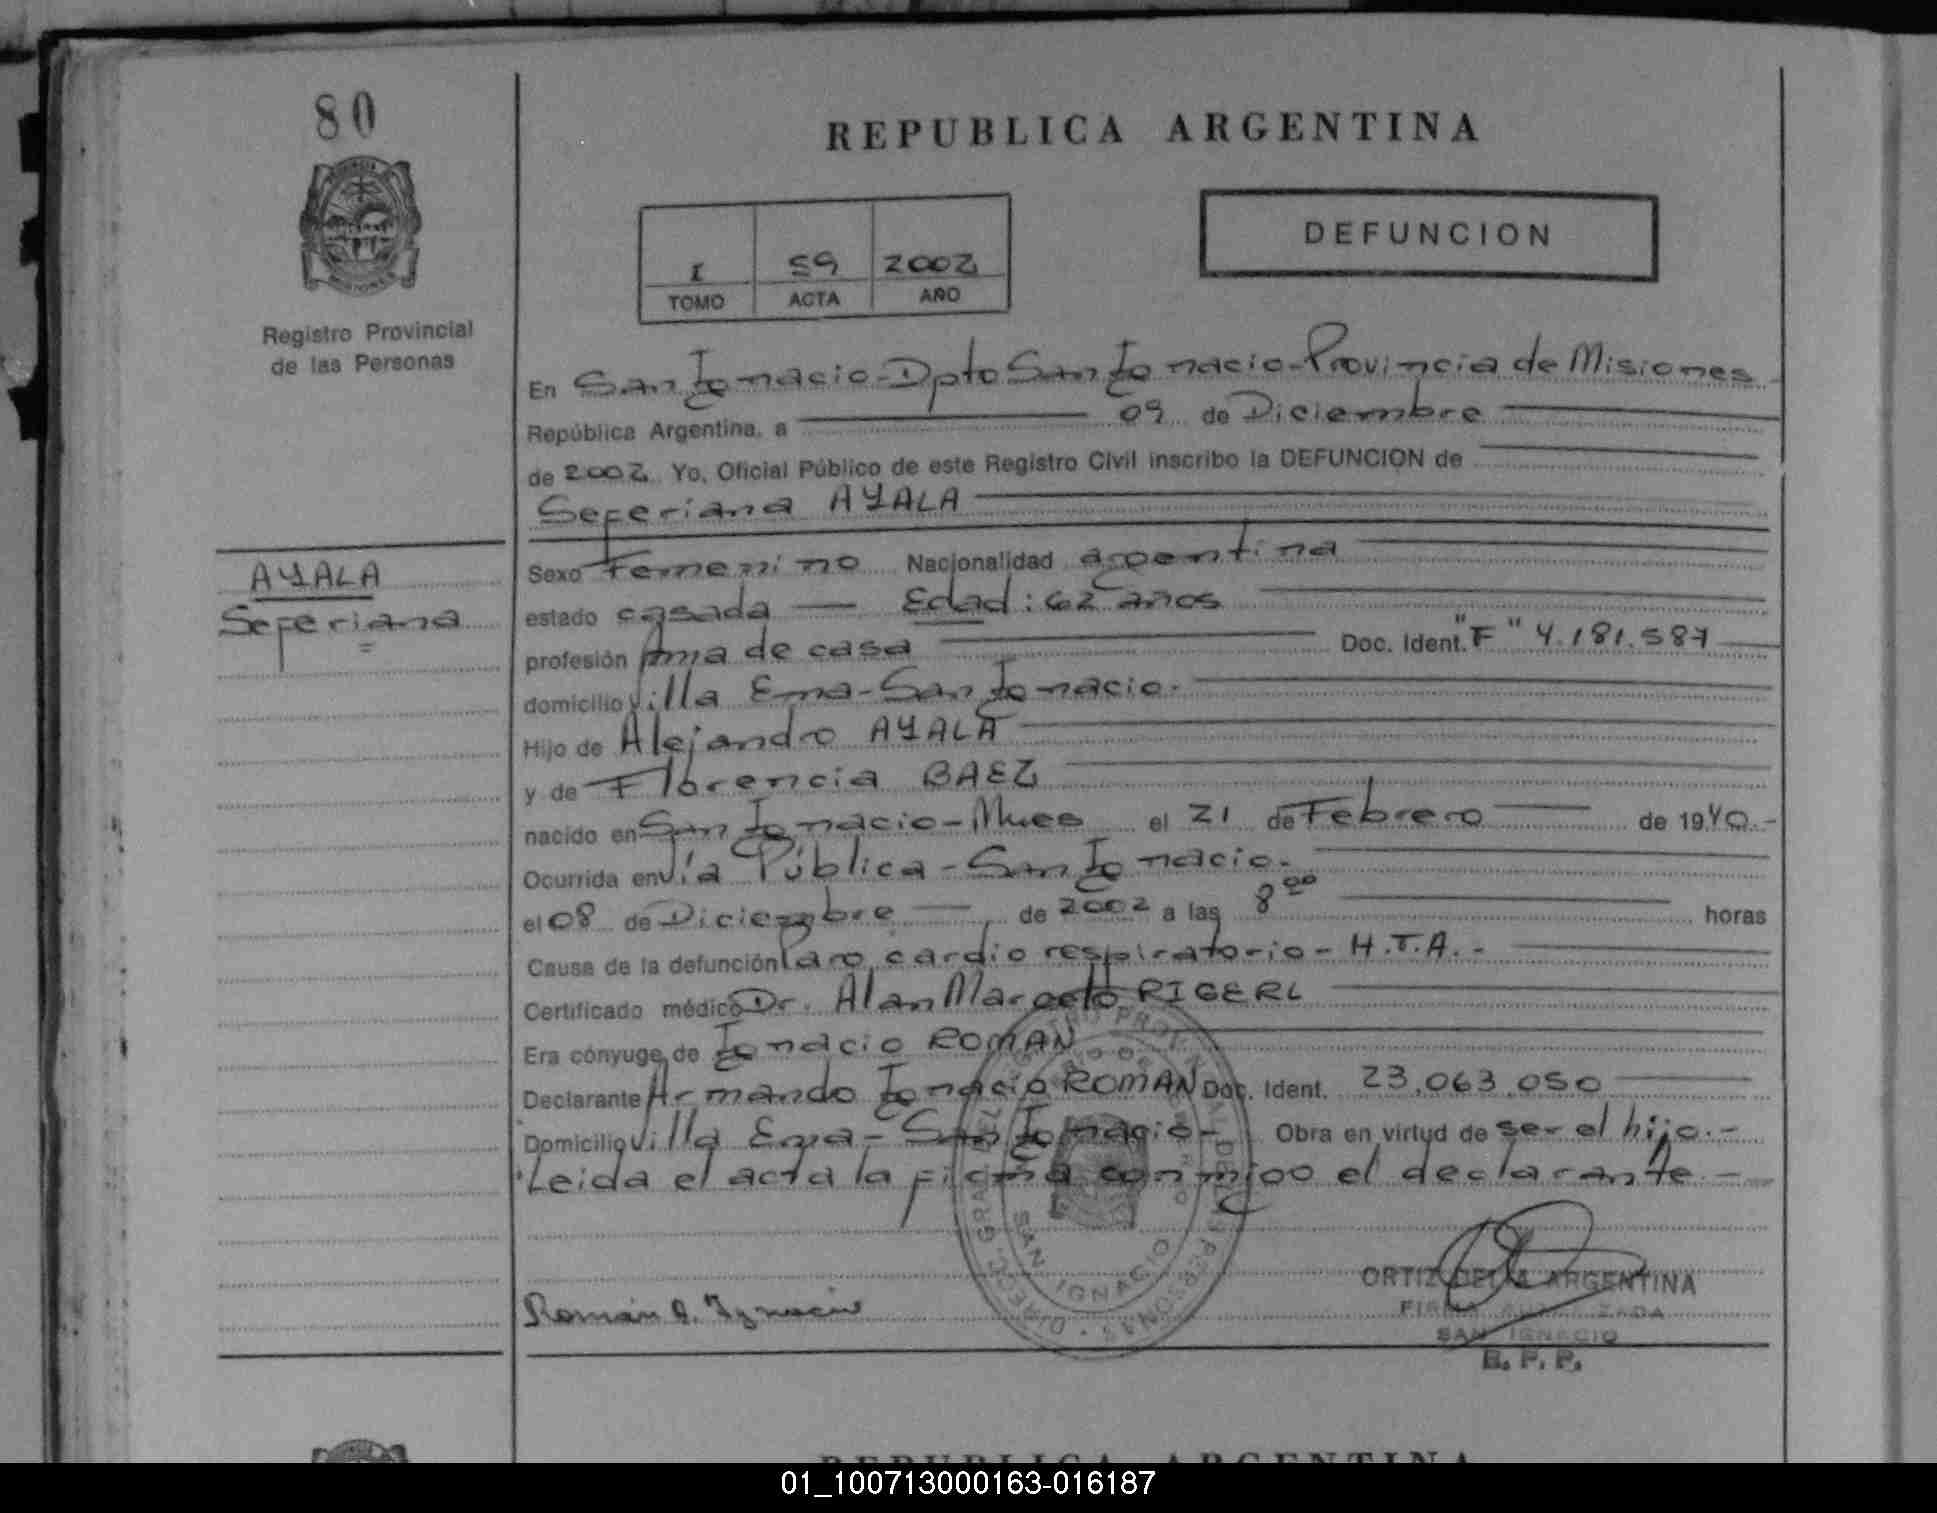 80
REPUBLICA ARGENTINA
DEFUNCION
I 59 2002
TOMO ACTA AÑO
Registro Provincial
de las Personas
En San Ignacio-Dpto San Ignacio-Provincia de Misiones-
República Argentina, a 09 de Diciembre
de 2002 Yo, Oficial Público de este Registro Civil inscribo la DEFUNCION de
Seferiana AYALA
AYALA
Seferiana
Sexo Femenino Nacionalidad argentina
estado casada — Edad: 62 años
profesión Ama de casa Doc. Ident. "F" 4.181.587
domicilio Villa Ema-San Ignacio.
Hijo de Alejandro AYALA
y de Florencia BAEZ
nacido en San Ignacio-Mnes el 21 de Febrero de 1940.-
Ocurrida en Vía Pública-San Ignacio.-
el 08 de Diciembre — de 2002 a las 8 00 horas
Causa de la defunción Paro cardio respiratorio- H.T.A.-
Certificado médico Dr. Alan Marcelo RIGERL
Era cónyuge de Ignacio ROMAN
Declarante Armando Ignacio ROMAN Doc. Ident. 23.063.050
Domicilio Villa Ema-San Ignacio- Obra en virtud de ser el hijo.-
Leida el acta la firma conmigo el declarante.-
SAN IGNACIO
Román A. Ignacio
ORTIZ DELIA ARGENTINA
FIRMA AUTORIZADA
SAN IGNACIO
R. P. P.
REPUBLICA ARGENTINA
01_100713000163-016187